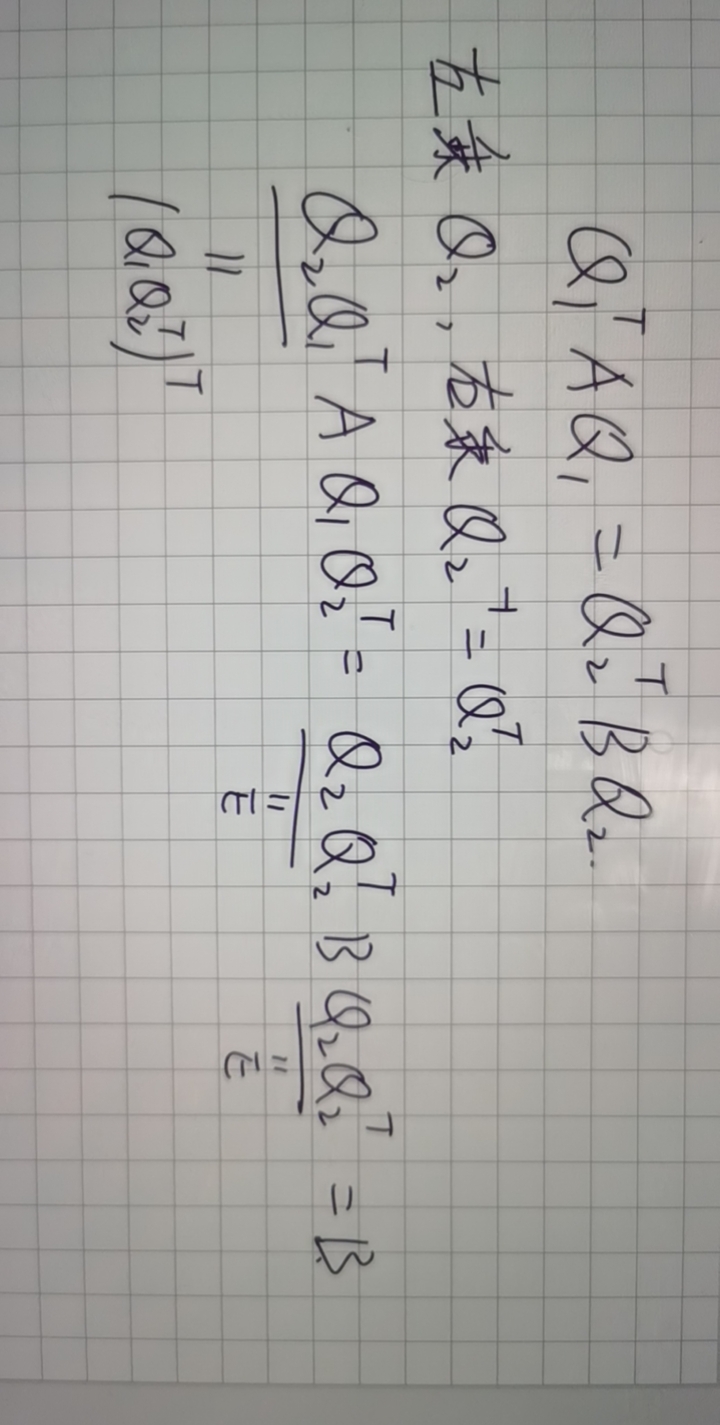 Q₁ᵀAQ₁ = Q₂ᵀBQ₂.
左乘Q₂,右乘Q₂⁻¹=Q₂ᵀ
Q₂Q₁ᵀAQ₁Q₂ᵀ = Q₂Q₂ᵀBQ₂Q₂ᵀ = B
= = =
(Q₁Q₂ᵀ)ᵀ E E